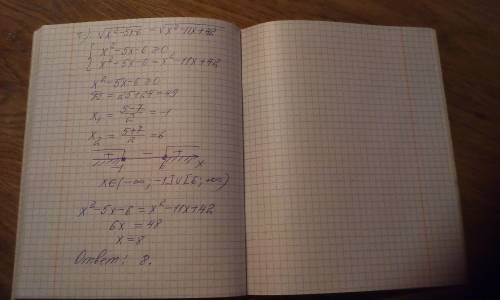 √x²-5x-6 = √x²-11x+42
{ x²-5x-6≥0
x²-5x-6=x²-11x+42
x²-5x-6≥0
D=25+24=49
x₁ = (5-7)/2 = -1
x₂ = (5+7)/2 = 6
+ - +
-1 6 x
x∈(-∞; -1]∪[6; +∞)
x²-5x-6=x²-11x+42
6x = 48
x=8
Ответ: 8.